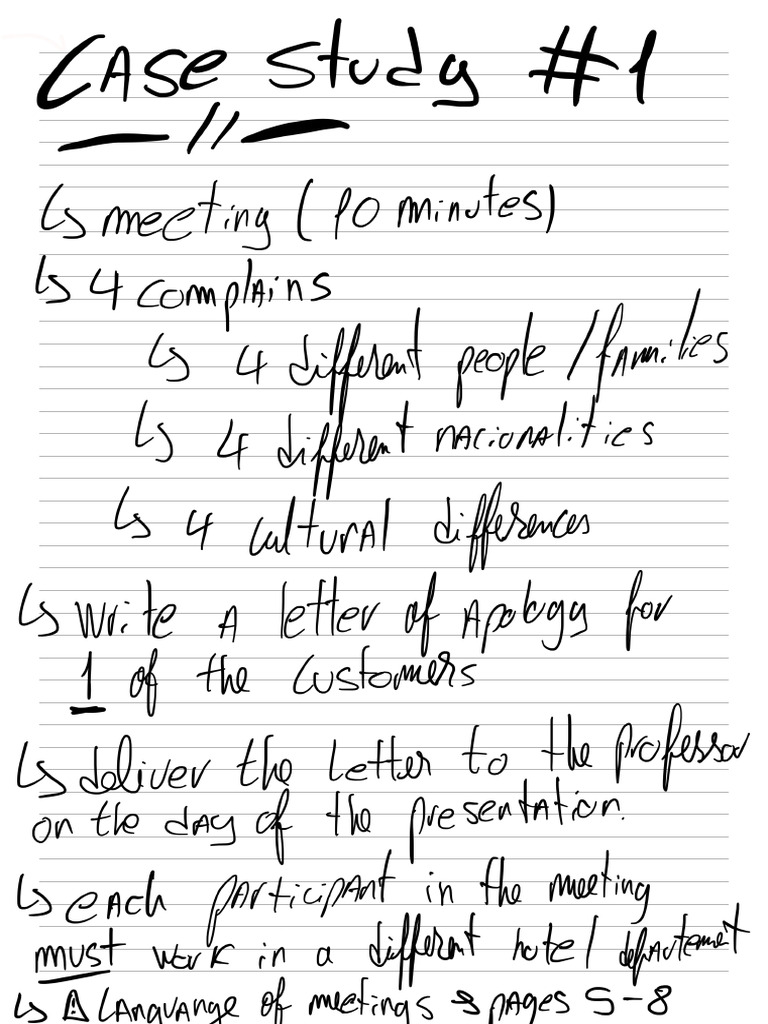 Case Study #1
↳ meeting (10 minutes)
↳ 4 complains
↳ 4 different people / families
↳ 4 different nacionalities
↳ 4 cultural differences
↳ write a letter of Apology for
1 of the customers
↳ deliver the letter to the professor
on the day of the presentation.
↳ each participant in the meeting
must work in a different hotel departement
↳ ⚠ Languange of meetings → pages 5-8